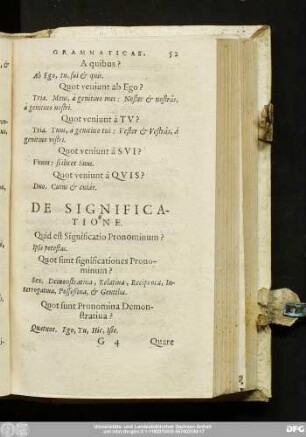 GRAMMATICAE. 52
A quibus?
Ab Ego, tu, sui & quis.
Quot veniunt ab Ego?
Tria. Meus, à genitiuo mei: Noster & nostrás,
à genitiuo nostri.
Quot veniunt à TV?
Tria. Tuus, à genitiuo tui: Vester & Vestrás, à
genitiuo vestri.
Quot veniunt à SVI?
Vnum: scilicet Suus.
Quot veniunt à QVIS?
Duo. Cuius & cuiás.
DE SIGNIFICA-
TIONE.
Quid est Significatio Pronominum?
Ipsa potestas.
Quot sunt significationes Prono-
minum?
Sex. Demonstratiua, Relatiua, Reciproca, In-
terrogatiua, Possessiua, & Gentilis.
Quot sunt Pronomina Demon-
stratiua?
Quatuor. Ego, Tu, Hic, Iste.
G 4 Quare
Universitäts- und Landesbibliothek Sachsen-Anhalt
DFG